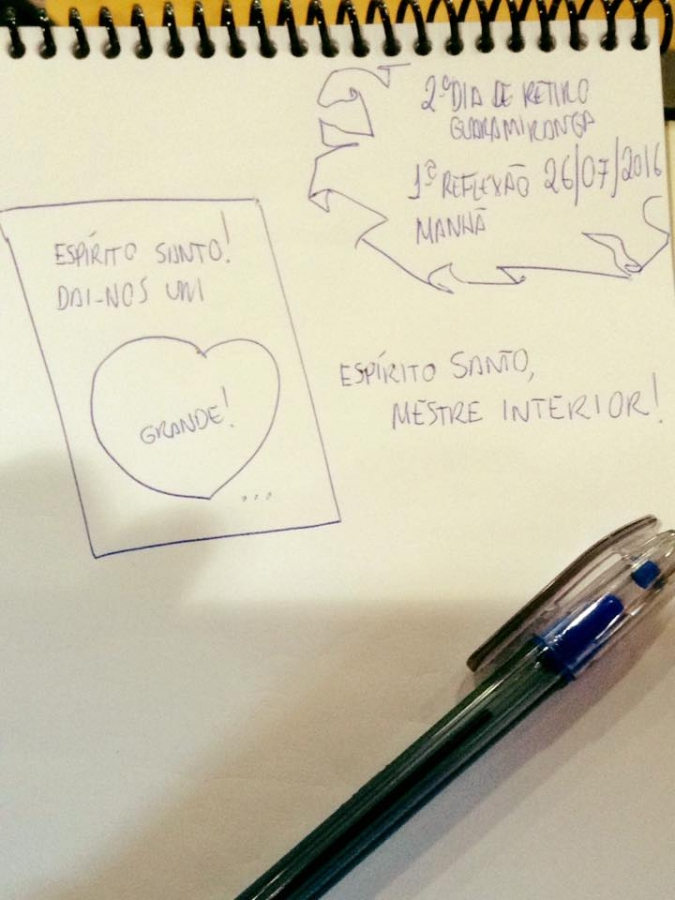 2º DIA DE RETIRO
GUARAMIRANGA
1ª REFLEXÃO 26/07/2016
MANHÃ
ESPÍRITO SANTO!
DAI-NOS UM
GRANDE!
...
ESPÍRITO SANTO,
MESTRE INTERIOR!